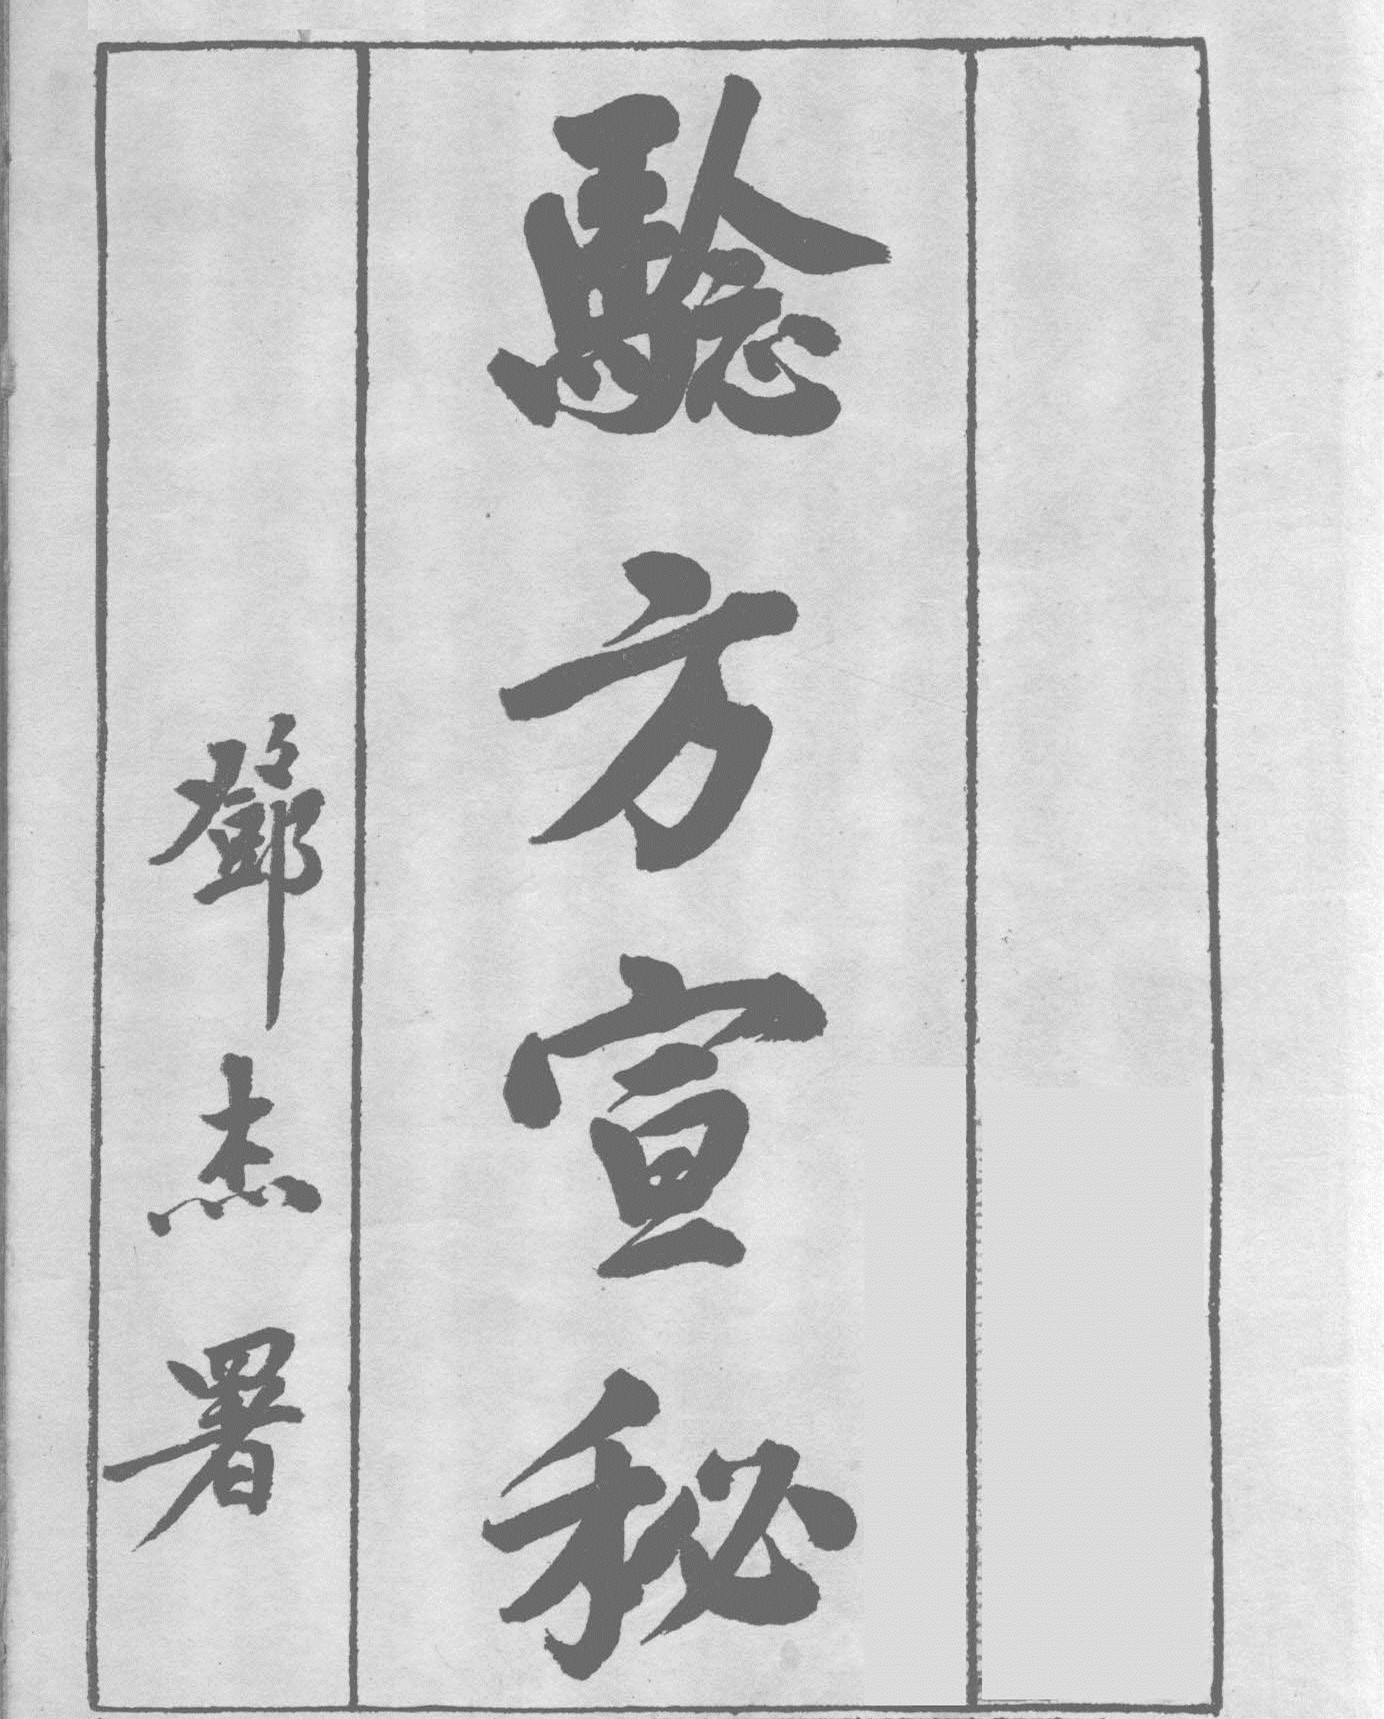 騐方宣秘
鄧杰署